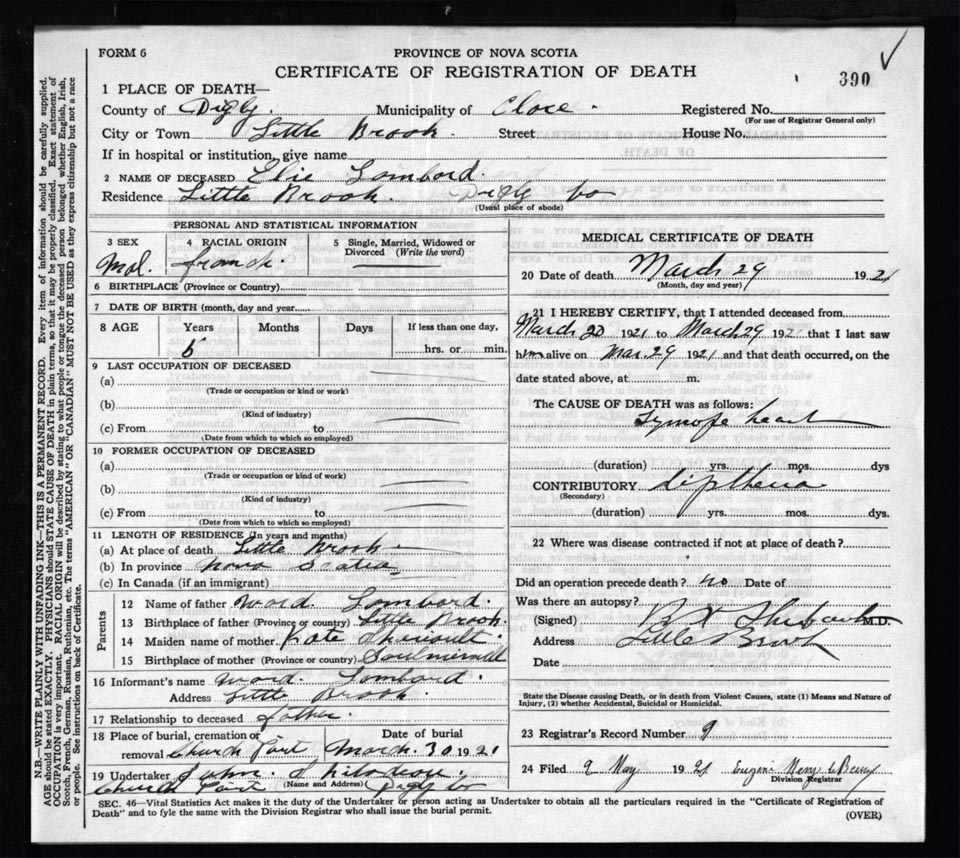 FORM 6
PROVINCE OF NOVA SCOTIA
CERTIFICATE OF REGISTRATION OF DEATH
390
1 PLACE OF DEATH—
County of Digby. Municipality of Clare. Registered No.
(For use of Registrar General only)
City or Town Little Brook. Street House No.
If in hospital or institution, give name
2 NAME OF DECEASED Elie Lombard.
Residence Little Brook. Digby Co
(Usual place of abode)
PERSONAL AND STATISTICAL INFORMATION
3 SEX 4 RACIAL ORIGIN 5 Single, Married, Widowed or Divorced (Write the word)
Mal. french.
6 BIRTHPLACE (Province or Country)
7 DATE OF BIRTH (month, day and year)
8 AGE Years Months Days If less than one day,
5 hrs. or min.
9 LAST OCCUPATION OF DECEASED
(a)
(Trade or occupation or kind or work)
(b)
(Kind of industry)
(c) From to
(Date from which to which so employed)
10 FORMER OCCUPATION OF DECEASED
(a)
(Trade or occupation or kind or work)
(b)
(Kind of industry)
(c) From to
(Date from which to which so employed)
11 LENGTH OF RESIDENCE (In years and months)
(a) At place of death Little Brook
(b) In province Nova Scotia
(c) In Canada (if an immigrant)
Parents
12 Name of father Word. Lombard.
13 Birthplace of father (Province or country) Little Brook.
14 Maiden name of mother Kate
15 Birthplace of mother (Province or country)
16 Informant's name Word. Lombard.
Address Little Brook.
17 Relationship to deceased father.
18 Place of burial, cremation or removal Church Point Date of burial March. 30. 1921
19 Undertaker John.
(Name and Address)
Church Point Digby Co
MEDICAL CERTIFICATE OF DEATH
20 Date of death March 29 1921
(Month, day and year)
21 I HEREBY CERTIFY, that I attended deceased from
March 20 1921 to March 29 192 that I last saw
him alive on Mar. 29 1921 and that death occurred, on the
date stated above, at m.
The CAUSE OF DEATH was as follows:
heart
(duration) yrs. mos. dys
CONTRIBUTORY diptheria
(Secondary)
(duration) yrs. mos. dys.
22 Where was disease contracted if not at place of death?
Did an operation precede death? no Date of
Was there an autopsy?
(Signed) M.D.
Address Little Brook
Date
State the Disease causing Death, or in death from Violent Causes, state (1) Means and Nature of
Injury, (2) whether Accidental, Suicidal or Homicidal.
23 Registrar's Record Number 9
24 Filed 9 May 1921
Division Registrar
SEC. 46—Vital Statistics Act makes it the duty of the Undertaker or person acting as Undertaker to obtain all the particulars required in the "Certificate of Registration of
Death" and to fyle the same with the Division Registrar who shall issue the burial permit.
(OVER)
N.B.—WRITE PLAINLY WITH UNFADING INK—THIS IS A PERMANENT RECORD. Every item of information should be carefully supplied.
AGE should be stated EXACTLY. PHYSICIANS should STATE CAUSE OF DEATH in plain terms, so that it may be properly classified. Exact statement of
OCCUPATION is very important. RACIAL ORIGIN will be described by stating to what people or tongue the deceased person belonged whether English, Irish,
Scotch, French, German, Russian, Ruthenian, etc. The terms "AMERICAN" OR "CANADIAN" MUST NOT BE USED as they express citizenship but not a race
or people. See instructions on back of Certificate.